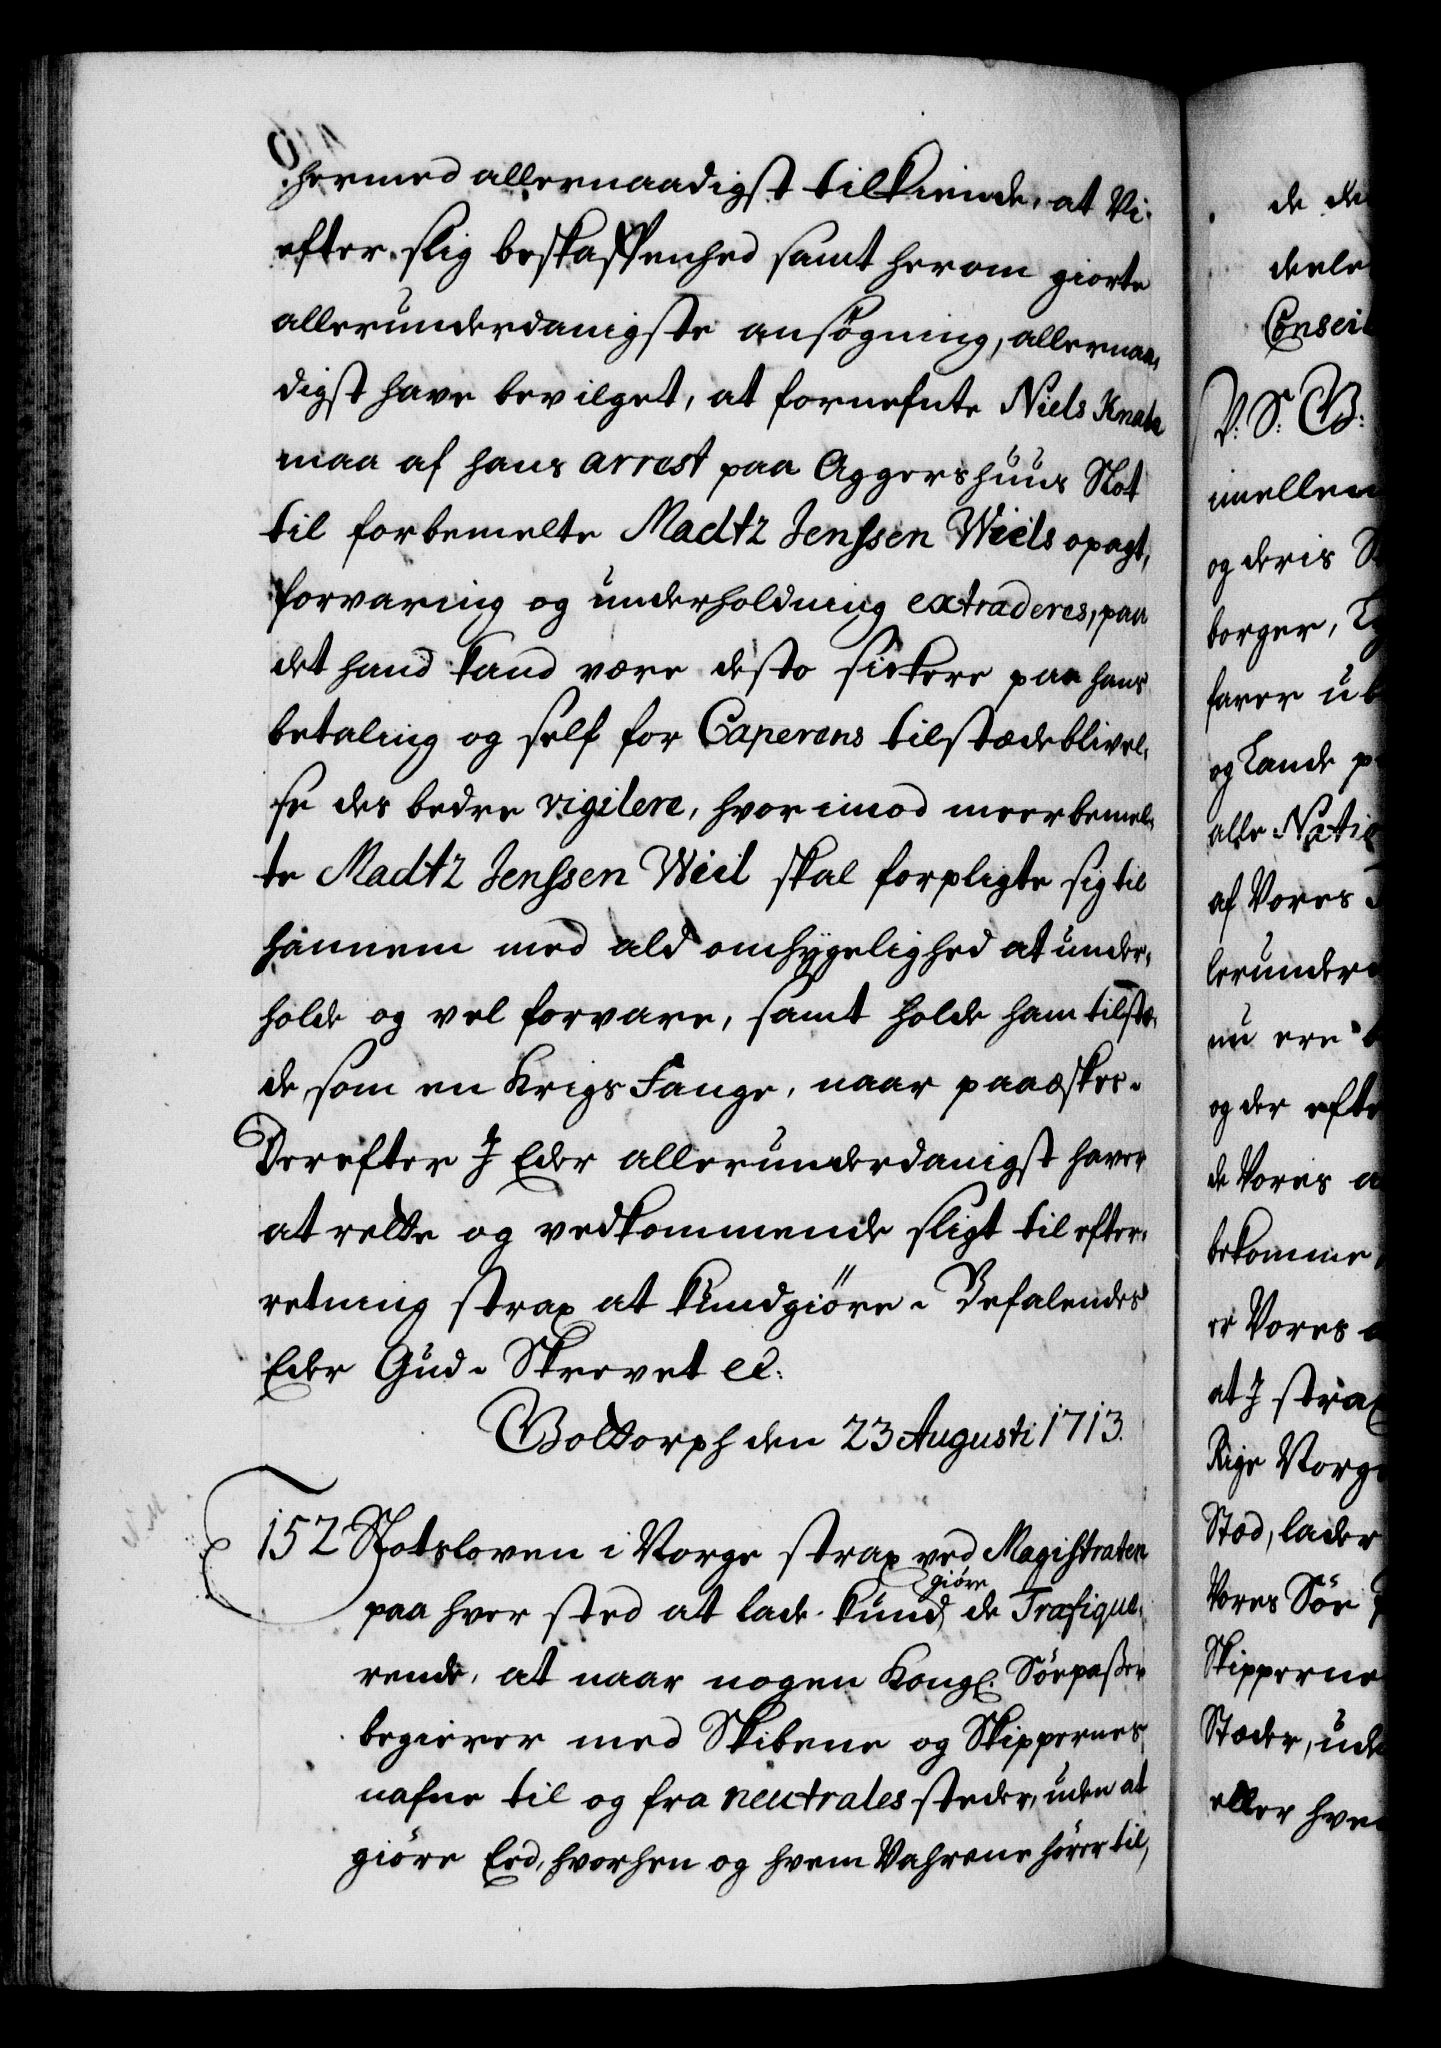 hermed allernaadigst tilkiende, at Vi
efter slig beskaffenhed samt herom giorte
allerunderdanigste ansøgning, allernaa,
digst have bevilget, at fornefnte Niels Knabe
maa af hans arrest paa Aggershuus Slot
til forbemelte Madtz Jenssen Wiels opagt,
forvaring og underholdning extraderes, paa
det hand kand være desto sickere paa hans
betaling og self for Caperens tilstædeblivel,
se des bedre vigilere, hvorimod meerbemel,
te Madtz Jenssen Wiel skal forpligte sig til
hannem med ald omhyggelighed at under,
holde og vel forvare, samt holde ham tilstæ,
de, som en Krigs Fange, naar paaæskes.
Derefter I Eder allerunderdanigst haver
at rette og vedkommende sligt til efter,
retning strax at kundgiøre. Befalendes
Eder Gud. Skrevet etc:
Gottorph den 23 Augusti 1713.
152 Slotsloven i Norge strax ved Magistraten
paa hver sted at lade kundgiøre de Trafique,
rende, at naar nogen Kongl. Søepasser
begierer med Skibene og Skippernes
nafne til og fra neutrales steder, uden at
giøre Eed, hvorhen og hvem Vahrene hører til,
de de
deele
Conseil
V: S: G:
imellem
og deris S
borger, 
farer ub
og Lande p
alle Natio
af Vores
lerunder
nu ere
og der efte
de Voris a
bekomme
er Vores
at I strax
Rige Norge
Stæd, lader
Vores Søe P
Skipperne
Stæder, ude
eller hve